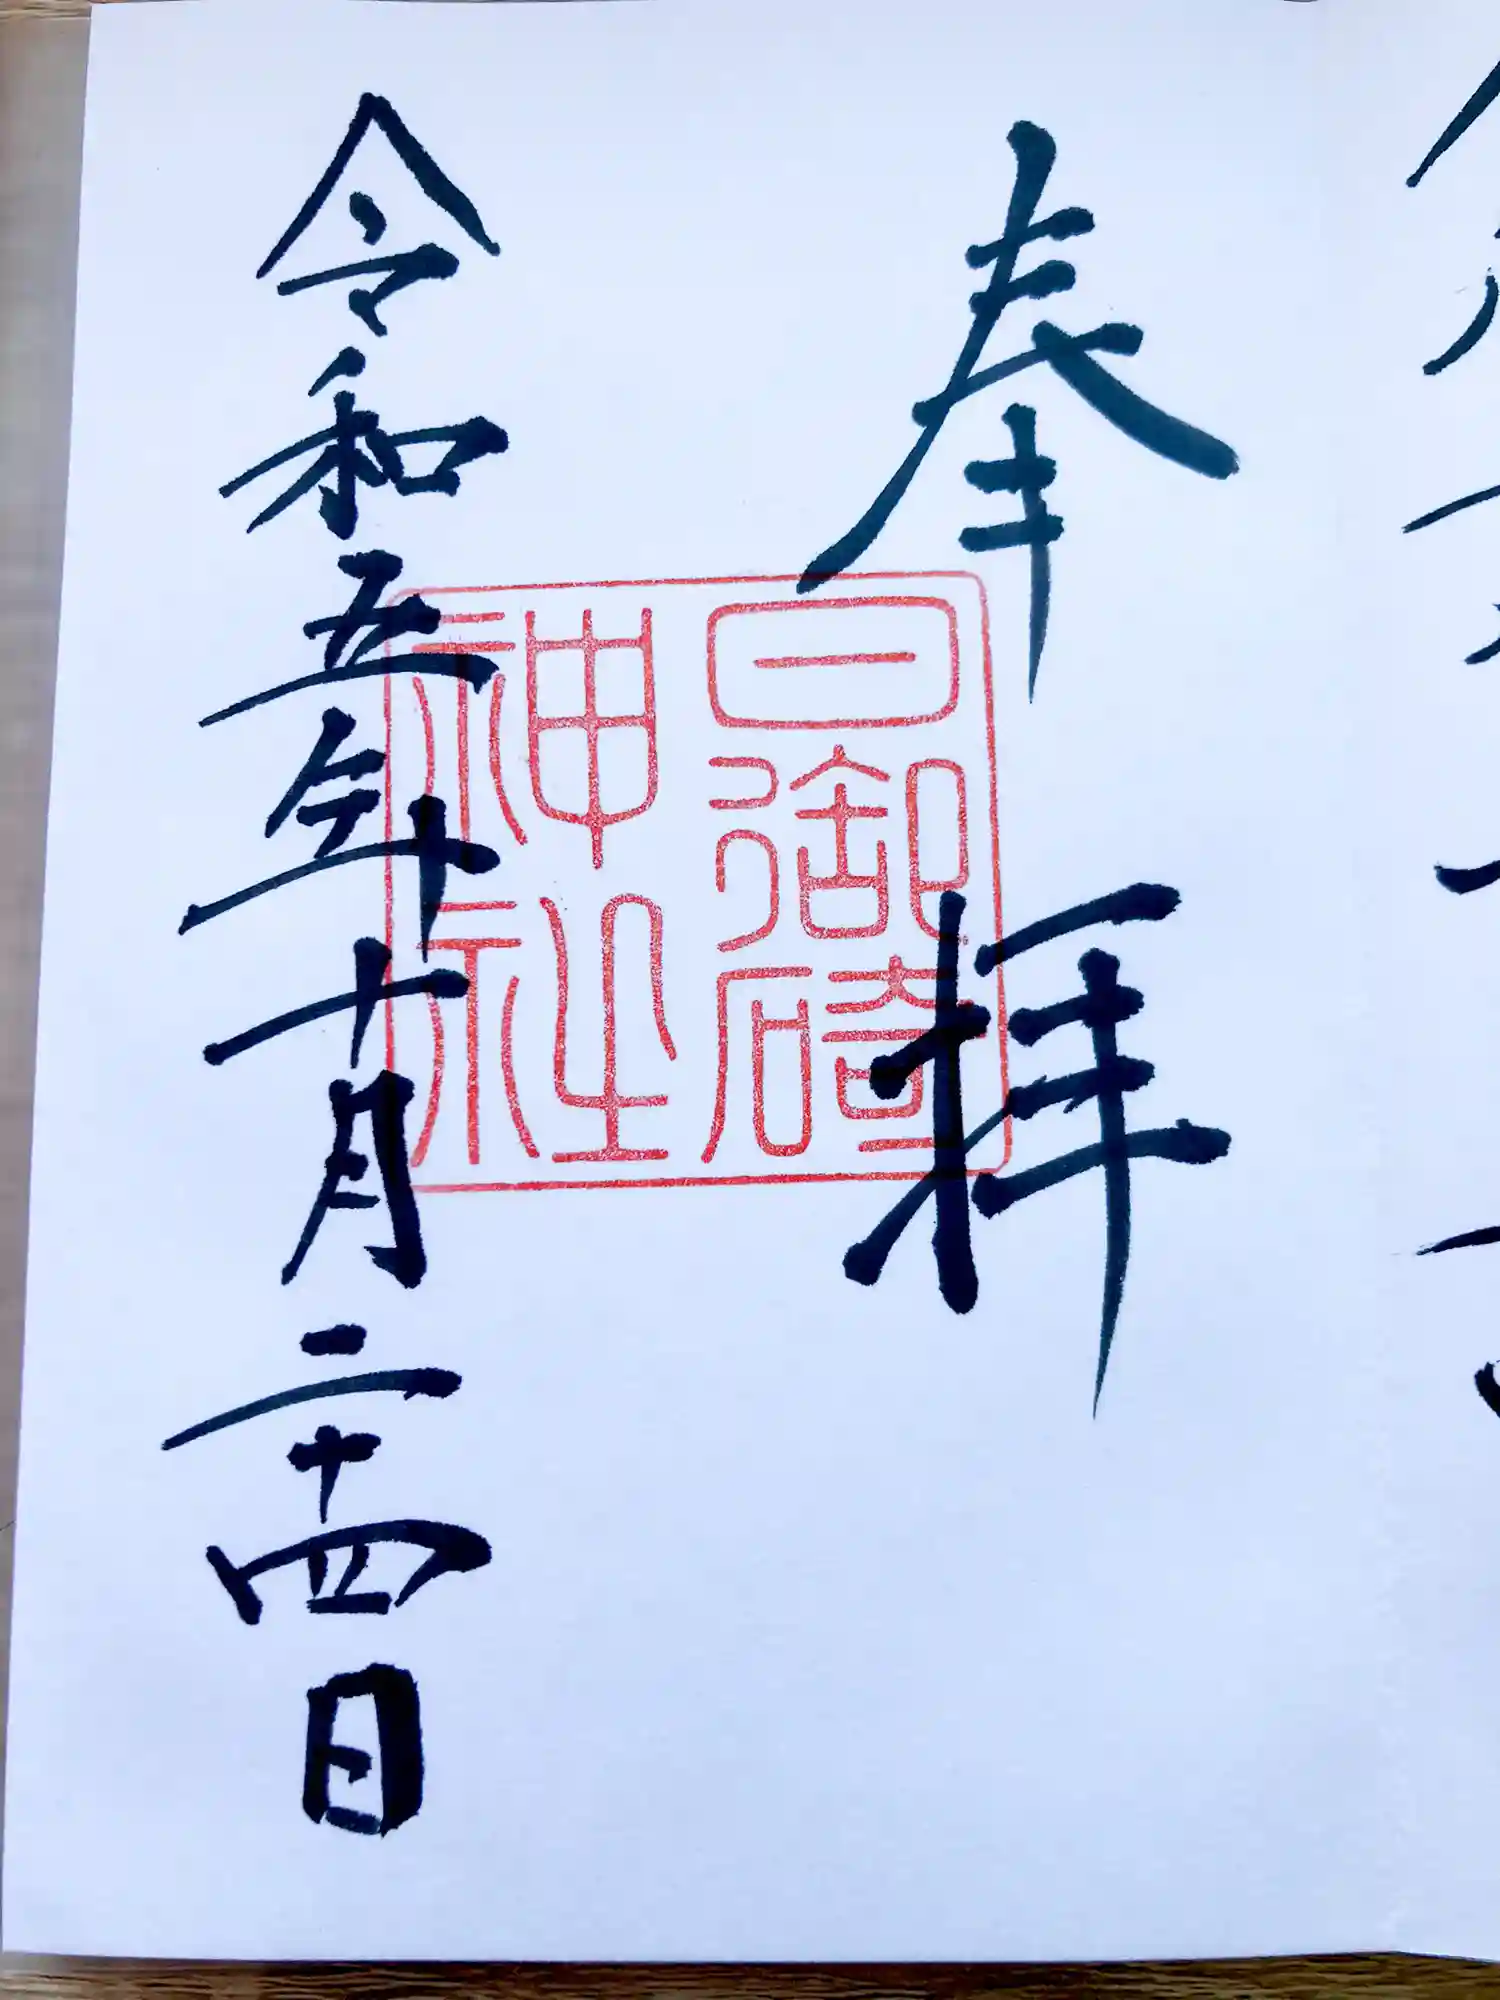 奉拝
日御碕
神社
令和五年十月二十四日